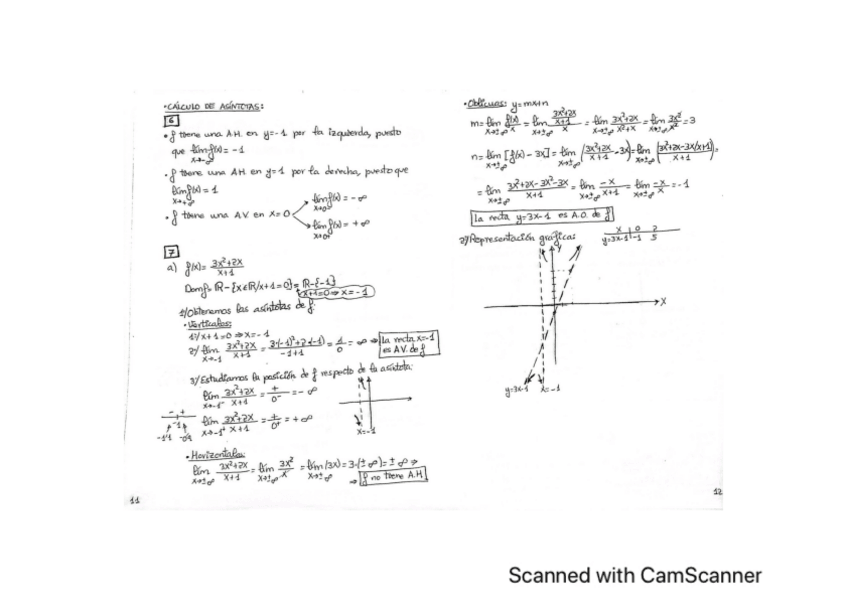 • CÁLCULO DE ASÍNTOTAS:
6
• f tiene una A.H. en y=-1 por la izquierda, puesto
que lím f(x) = -1
x→-∞
• f tiene una AH en y=1 por la derecha, puesto que
lím f(x) = 1
x→+∞
• f tiene una A.V. en x=0
lím f(x) = -∞
x→0⁻
lím f(x) = +∞
x→0⁺
7
a) f(x) = 3x²+2x / x+1
Domf = ℝ - {x∈ℝ/x+1=0} = ℝ-{-1}
x+1=0 ⇒ x=-1
1) Obtenemos las asíntotas de f:
• Verticales:
1) x+1=0 ⇒ x=-1
2) lím x→-1 3x²+2x / x+1 = 3·(-1)²+2·(-1) / -1+1 = 1/0 = ∞ ⇒ la recta x=-1 es A.V. de f
3) Estudiamos la posición de f respecto de la asíntota:
lím x→-1⁻ 3x²+2x / x+1 = +/0⁻ = -∞
lím x→-1⁺ 3x²+2x / x+1 = +/0⁺ = +∞
x=-1
• Horizontales:
lím x→±∞ 3x²+2x / x+1 = lím x→±∞ 3x²/x = lím x→±∞ (3x) = 3·(±∞) = ±∞ ⇒
⇒ f no tiene A.H.
11
• Oblicuas: y=mx+n
m = lím x→±∞ f(x)/x = lím x→±∞ (3x²+2x / x+1) / x = lím x→±∞ 3x²+2x / x²+x = lím x→±∞ 3x²/x² = 3
n = lím x→±∞ [f(x) - 3x] = lím x→±∞ (3x²+2x / x+1 - 3x) = lím x→±∞ (3x²+2x-3x(x+1) / x+1) =
= lím x→±∞ 3x²+2x-3x²-3x / x+1 = lím x→±∞ -x / x+1 = lím x→±∞ -x/x = -1
la recta y=3x-1 es A.O. de f
2) Representación gráfica:
x 0 2
y=3x-1 -1 5
y
x
y=3x-1 x=-1
12
Scanned with CamScanner